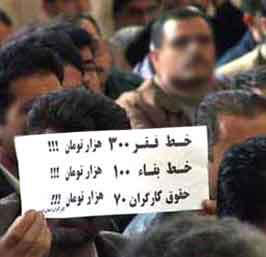 خط فقر ۳۰۰ هزار تومان !!!
خط بقاء ۱۰۰ هزار تومان !!!
حقوق کارگران ۷۰ هزار تومان !!!